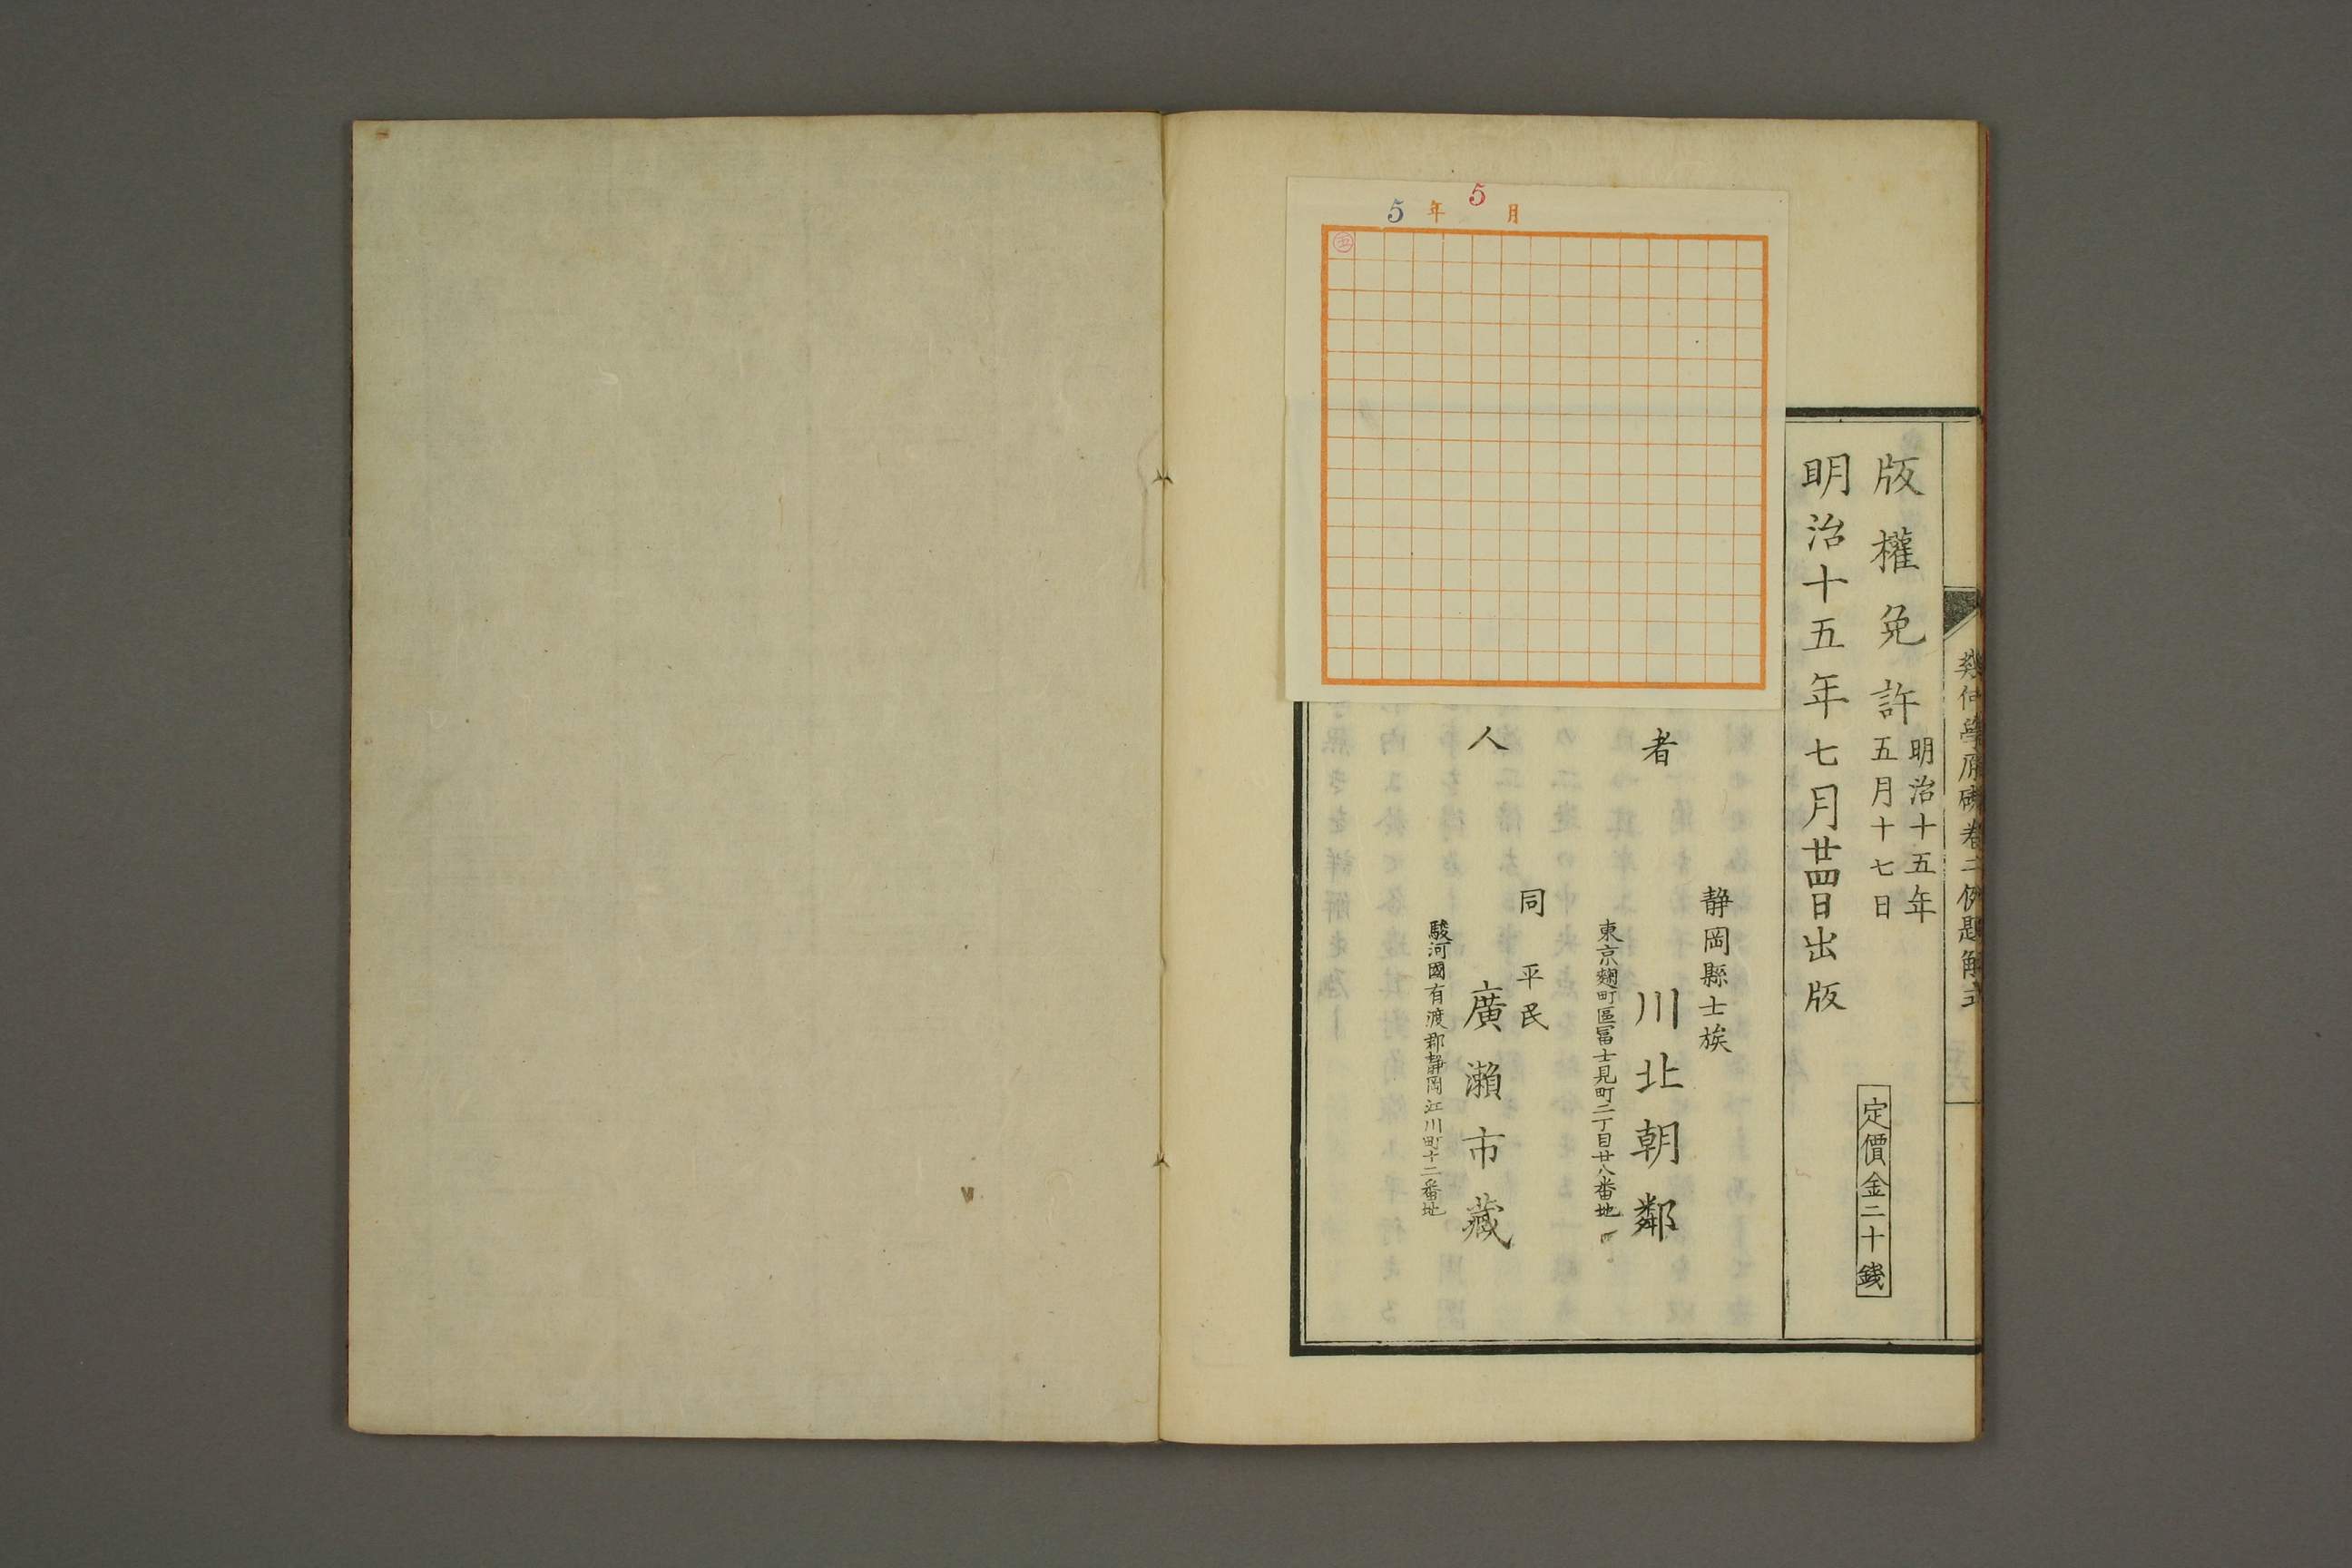 幾何學原礎卷二例題解式
版權免許
明治十五年
五月十七日
定價金二十錢
明治十五年七月廿四日出版
5年5月
者
静岡縣士族
川北朝鄰
東京麹町區冨士見町二丁目廿八番地
人
同 平民
廣瀨市藏
駿河國有渡郡静岡江川町十二番地